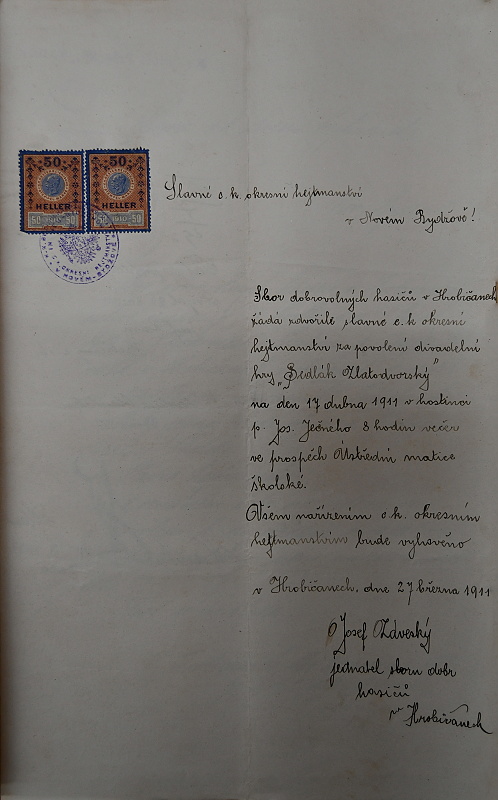 50
HELLER
50 1910 50
50
HELLER
50 1910 50
Slavné c. k. okresní hejtmanství
v Novém Bydžově!
Sbor dobrovolných hasičů v Hrobičanech
žádá zdvořile slavné c. k. okresní
hejtmanství za povolení divadelní
hry „Sedlák Zlatodvorský"
na den 17 dubna 1911 v hostinci
p. Jos. Ječného 8 hodin večer
ve prospěch Ústřední matice
školské.
Všem nařízením c. k. okresním
hejtmanstvím bude vyhověno
v Hrobičanech. dne 27 března 1911
Josef Zdverský
jednatel sboru dobr
hasičů
v Hrobičanech